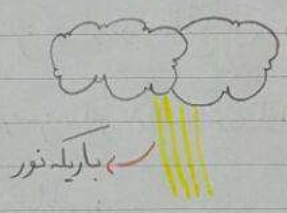 باریکه نور